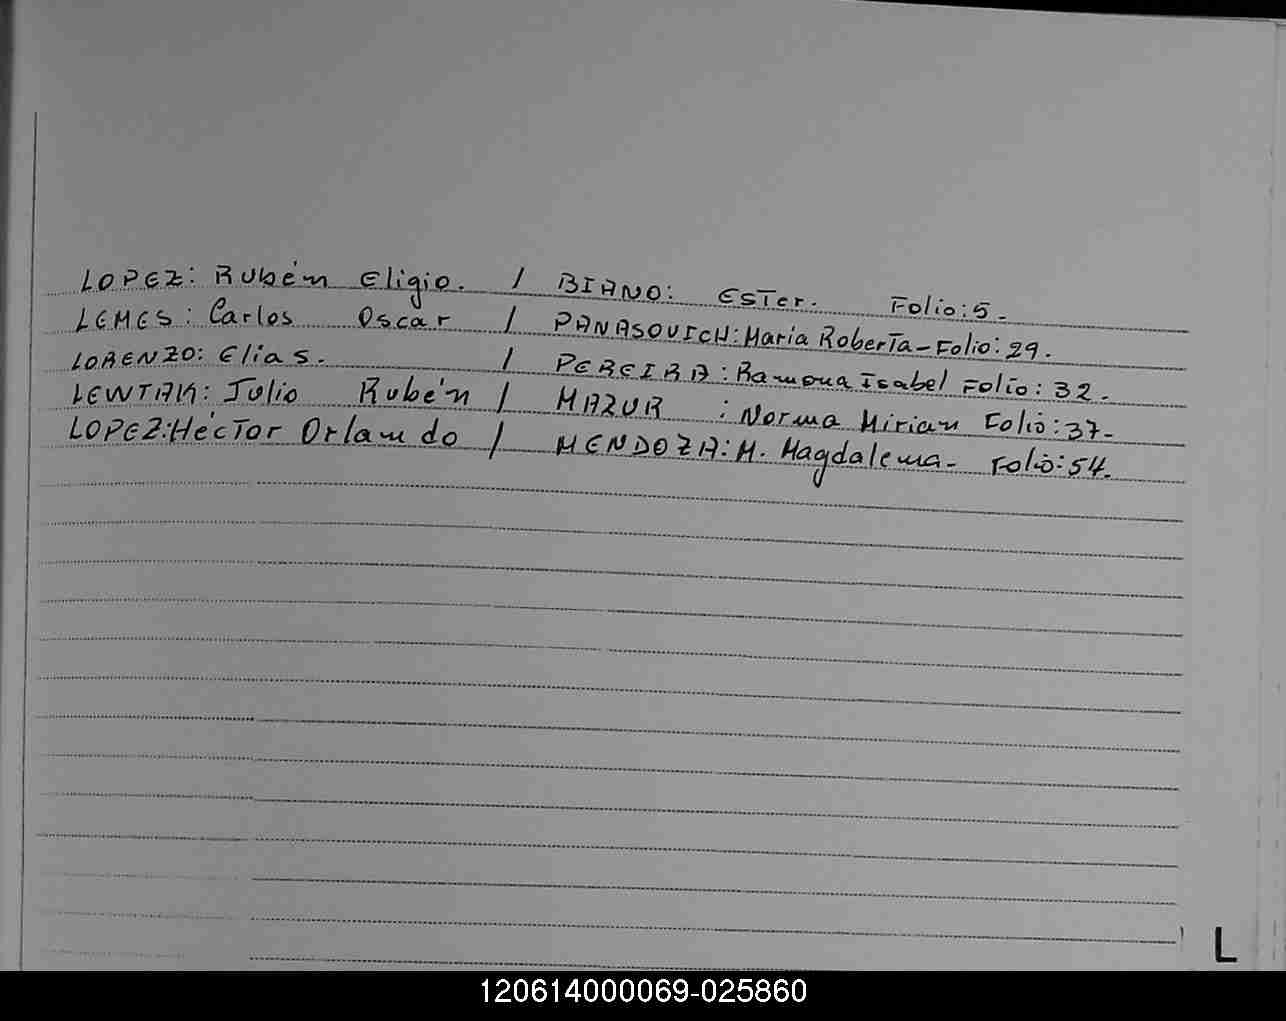 LOPEZ: Rubén Eligio. / BIANO: Ester. Folio: 5.
LEMES: Carlos Oscar / PANASOVICH: Maria Roberta - Folio: 29.
LORENZO: Elias. / PEREIRA: Ramona Isabel Folio: 32.
LEWTAK: Julio Rubén / MAZUR : Norma Mirian Folio: 37-
LOPEZ: Héctor Orlando / MENDOZA: M. Magdalena - Folio: 54.
L
120614000069-025860